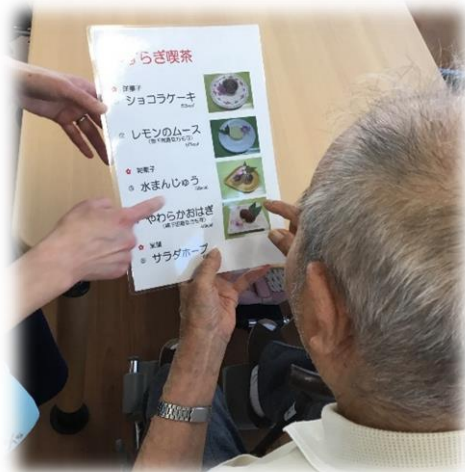 らぎ喫茶
洋菓子
ショコラケーキ
レモンのムース
和菓子
水まんじゅう
やわらかおはぎ
サラダホープ